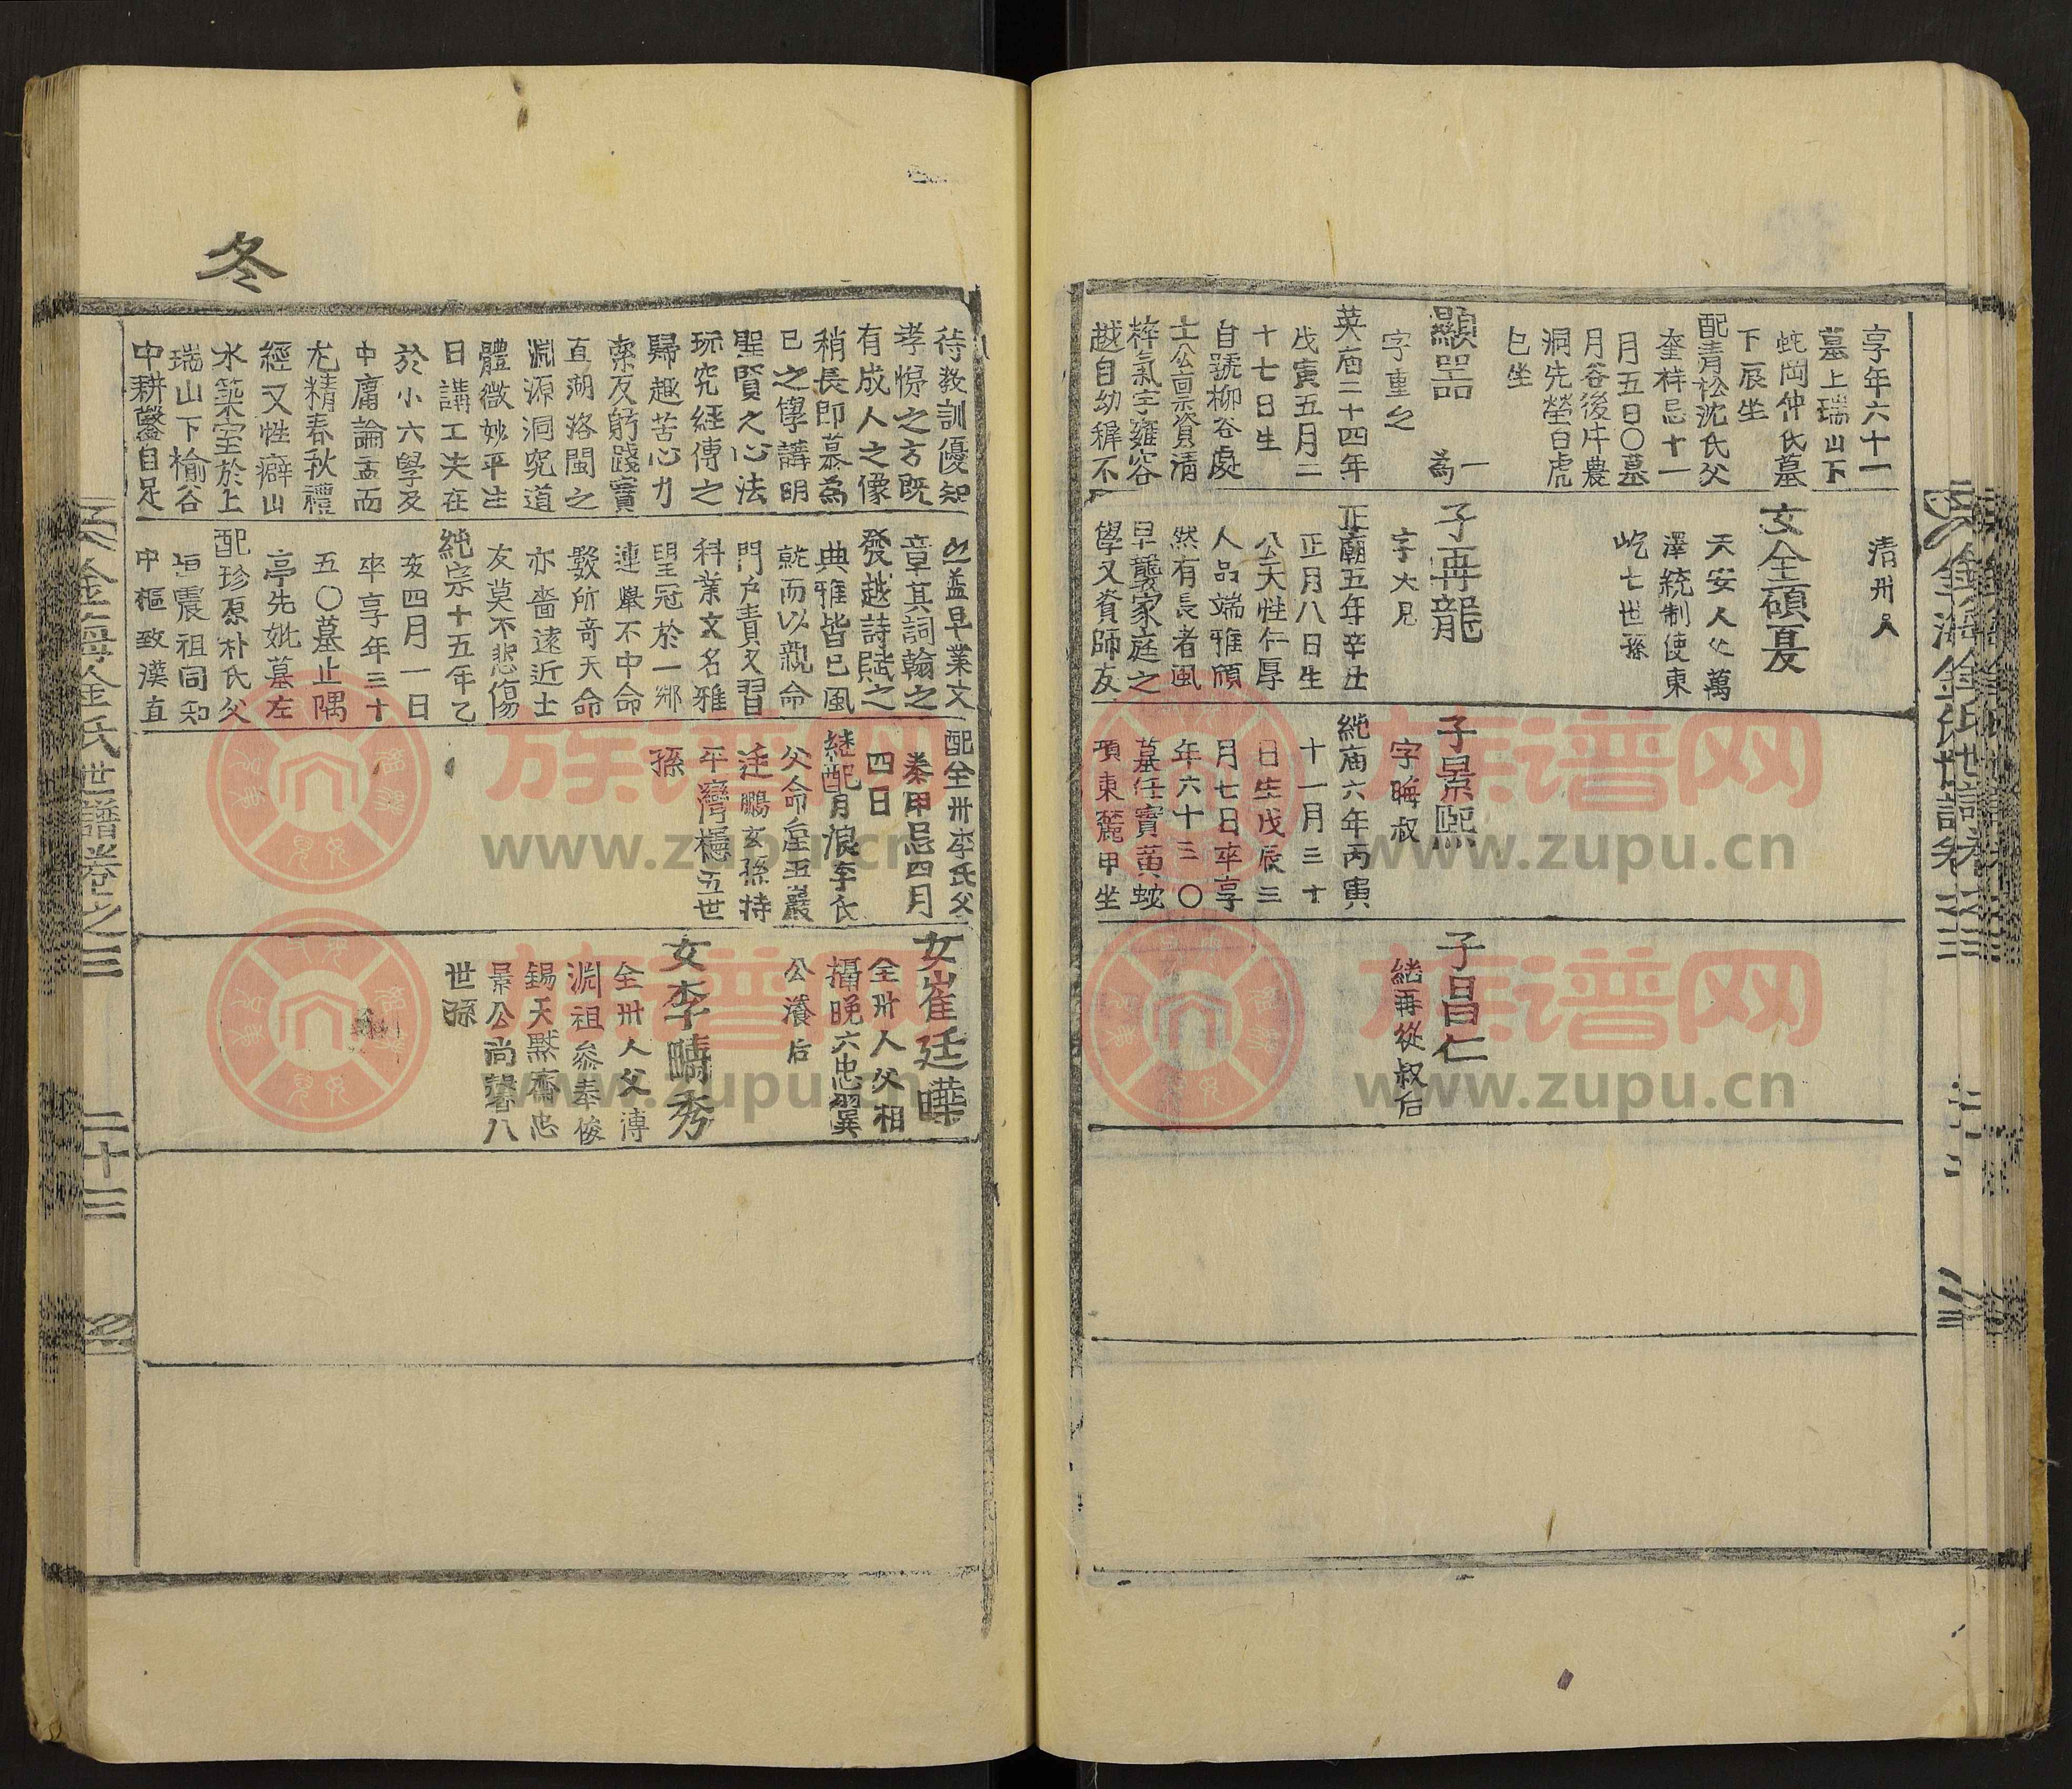 享年六十一
墓上瑞山下
蛇岡仲氏墓
下辰坐
配青松沈氏父
奎祥忌十一
月五日〇墓
月谷後牛農
洞先塋白虎
巳坐
顯器 一
為
字重之
英庙二十四年
戊寅五月二
十七日生
自號柳谷處
士公禀資清
粹氣宇雍容
越自幼穉不
清州人
女全碩夏
天安人父萬
澤統制使東
屹七世孫
子再龍
字大見
正廟五年辛丑
正月八日生
公天性仁厚
人品端雅頎
然有長者風
早襲家庭之
學又資師友
子景熙
字晦叔
純庙六年丙寅
十一月三十
日生戊辰三
月七日卒享
年六十三〇
墓任實黄蛇
項東麓甲坐
子昌仁
継再從叔后
金海金氏世譜卷之三
冬
待教訓優知
孝悌之方既
有成人之像
稍長即慕為
已之學講明
聖賢之心法
玩究經傳之
歸趣苦心力
索反躬踐實
直溯洛閩之
淵源洞究道
體微妙平生
日講工夫在
於小六學及
中庸論孟而
尤精春秋禮
經又性癖山
水築室於上
瑞山下榆谷
中耕鑿自足
之益早業文
章其詞翰之
發越詩賦之
典雅皆已風
就而以親命
門戶責又習
科業文名雅
望冠於一郷
連擧不中命
數所奇天命
亦嗇遠近士
友莫不悲傷
純宗十五年乙
亥四月一日
卒享年三十
五〇墓止隅
亭先妣墓左
配珍原朴氏父
垣震祖同知
中樞致漢直
配全州李氏父
秦甲忌四月
四日
継配月浪李氏
父命崟五巖
廷鵬玄孫持
平灣穩五世
孫
女崔廷曄
全州人父相
攝晚六忠翼
公瀁后
女李疇秀
全州人父溥
淵祖叅奉俊
錫天黙齋忠
景公尚馨八
世孫
金海金氏世譜卷之三
二十三
族谱网
www.zupu.cn
族谱网
www.zupu.cn
族谱网
www.zupu.cn
族谱网
www.zupu.cn